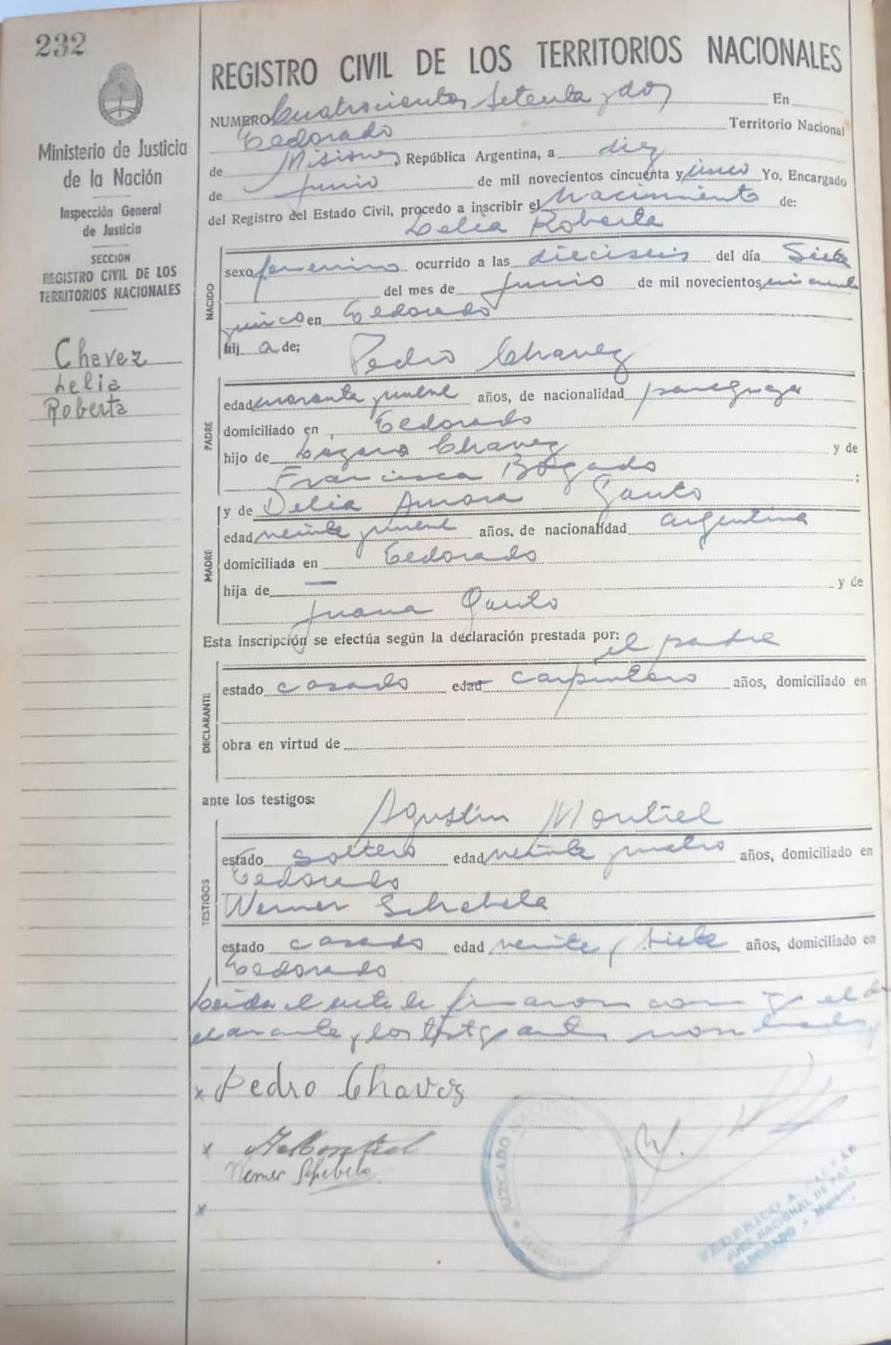 232
Ministerio de Justicia
de la Nación
Inspección General
de Justicia
SECCION
REGISTRO CIVIL DE LOS
TERRITORIOS NACIONALES
Chavez
Lelia
Roberta
REGISTRO CIVIL DE LOS TERRITORIOS NACIONALES
NUMERO Cuatrocientos Setenta y dos En
Eldorado Territorio Nacional
de Misiones, República Argentina, a diez
de Junio de mil novecientos cincuenta y cinco Yo, Encargado
del Registro del Estado Civil, procedo a inscribir el Nacimiento de:
Lelia Roberta
NACIDO
sexo femenino ocurrido a las dieciseis del día Siete
del mes de Junio de mil novecientos
en Eldorado
hij a de; Pedro Chavez
PADRE
edad años, de nacionalidad paraguaya
domiciliado en Eldorado
hijo de Chavez y de
Francisca Bogado ;
MADRE
y de Delia
edad veinte años, de nacionalidad argentina
domiciliada en Eldorado
hija de — y de
Juana
Esta inscripción se efectúa según la declaración prestada por: el padre
DECLARANTE
estado casado edad carpintero años, domiciliado en
obra en virtud de
ante los testigos: Agustin Montiel
TESTIGOS
estado Soltero edad veinte y cuatro años, domiciliado en
Eldorado
Werner
estado casado edad veinte y siete años, domiciliado en
Eldorado
Leida el acta la firmaron conmigo el de
clarante y los testigos
x Pedro Chavez
x
Werner
x
JUZGADO NACIONAL
ELDORADO
FEDERICO A.
JUEZ NACIONAL DE PAZ
ELDORADO - Misiones